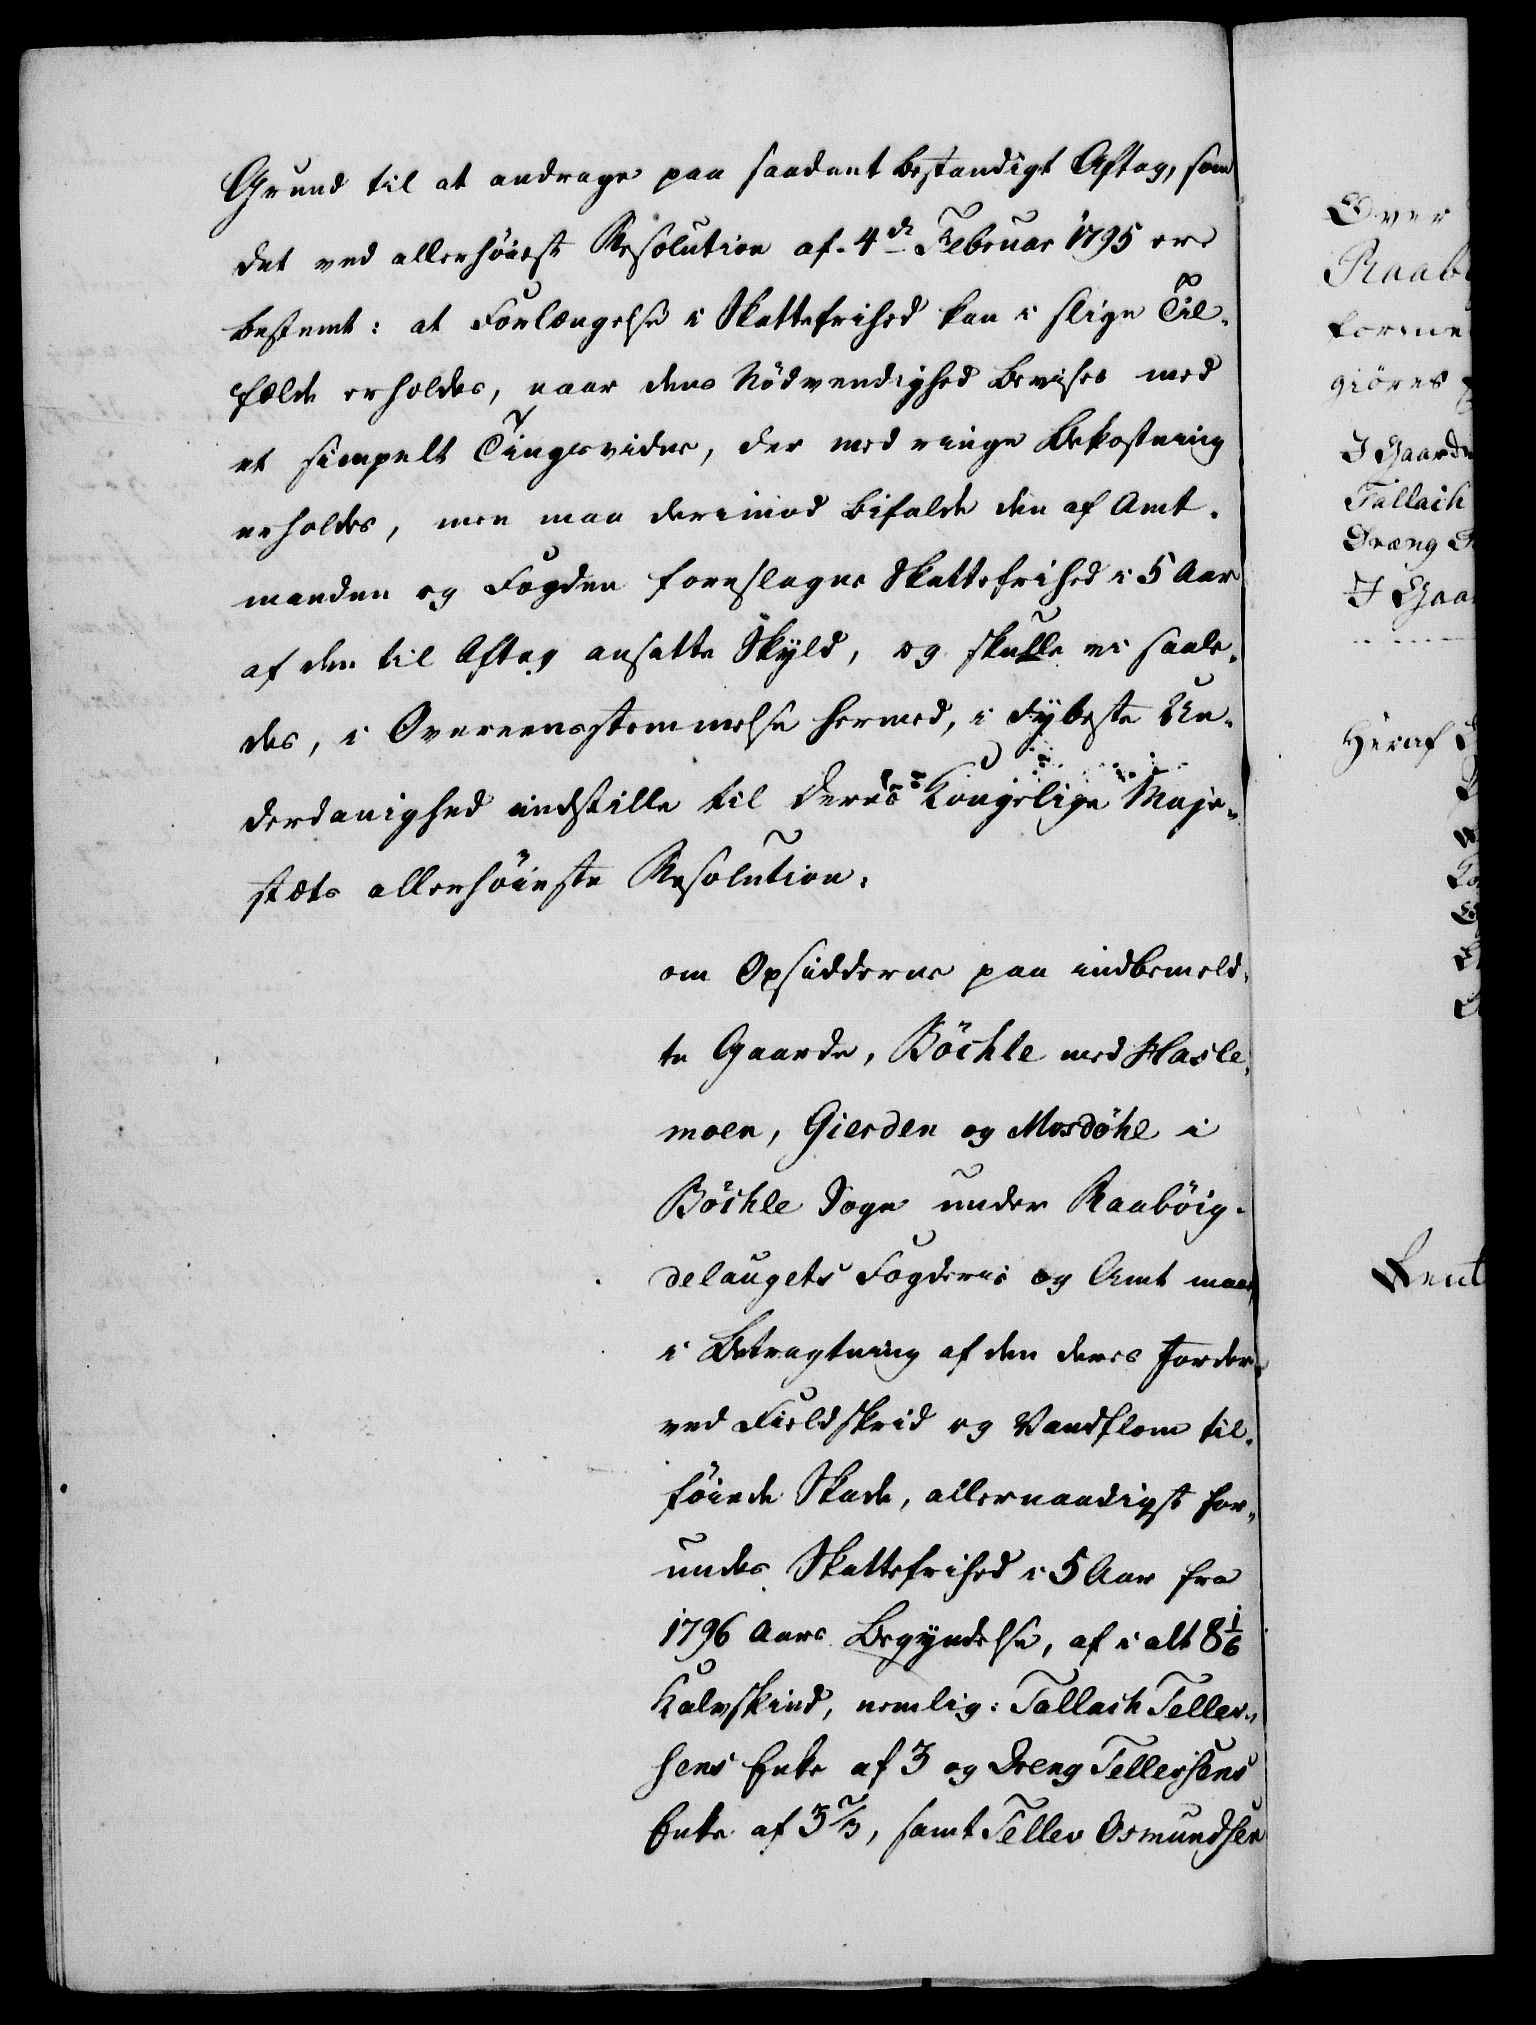 Grund til at andrage paa saadant bestandigt Aftag, som
det ved allerhöieste Resolution af 4de Februar 1795 er
bestemt: at Forlængelse i Skattefrihed kan i slige Til-
fælde erholdes, naar dens Nödvendighed bevises med
et simpelt Tingsvidne, der med ringe Bekostning
erholdes, men maa derimod bifalde den af Amt-
manden og Fogden foreslagne Skattefrihed i 5 Aar
af den til Aftag ansatte Skyld, og skulle vi saale-
des, i Overeensstemmelse hermed, i dybeste Un-
derdanighed indstille til Deres Kongelige Maje-
stæts allerhöieste Resolution,
om Opsidderne paa indbemeld-
te Gaarde, Böchle med Hasle-
moen, Gierden og Mosdöhl i
Böchle Sogn under Raabóig-
delaugets Fogderie og Amt maae,
i Betragtning af den deres Jorder
ved Fieldskrid og Vandflom til-
föiede Skade, allernaadigst for-
undes Skattefrihed i 5 Aar fra
1796 Aars Begyndelse, af i alt 8 1/6
Kalvskind, nemlig: Tallach Tellev-
sens Enke af 3 og Dreng Tellevsens
Enke af 3 2/3, samt Tellev Osmundsen
Over
Raab
komme
giöres
I Gaarde
Tallach
Dræng
I Gaar
Heraf
Rent